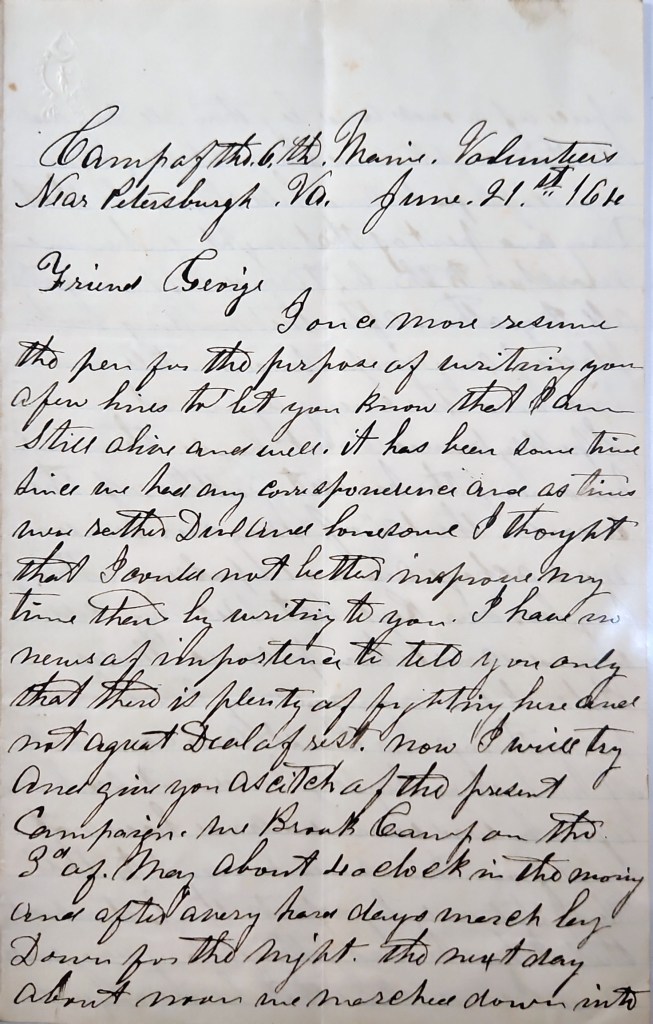 Camp of the. 6. th. Maine. Volunteers
Near Petersburgh. Va. June. 21.st 164
Friend George
I once more resume
the pen for the purpose of writing you
a few lines to let you know that I am
Still alive and well. it has been some time
since we had any correspondence and as times
were rather Dul and lonesome I thought
that I could not better improve my
time than by writing to you. I have no
news of importence to told you only
that there is plenty of fighting here and
not a great Deal of rest. now I will try
and give you a scitch of the present
Campaign. we Brouk Camp on the
3d of. May about 4 oclock in the mornig
and after a very hard days march lay
Down for the Night. the next day
about noon we marched down into